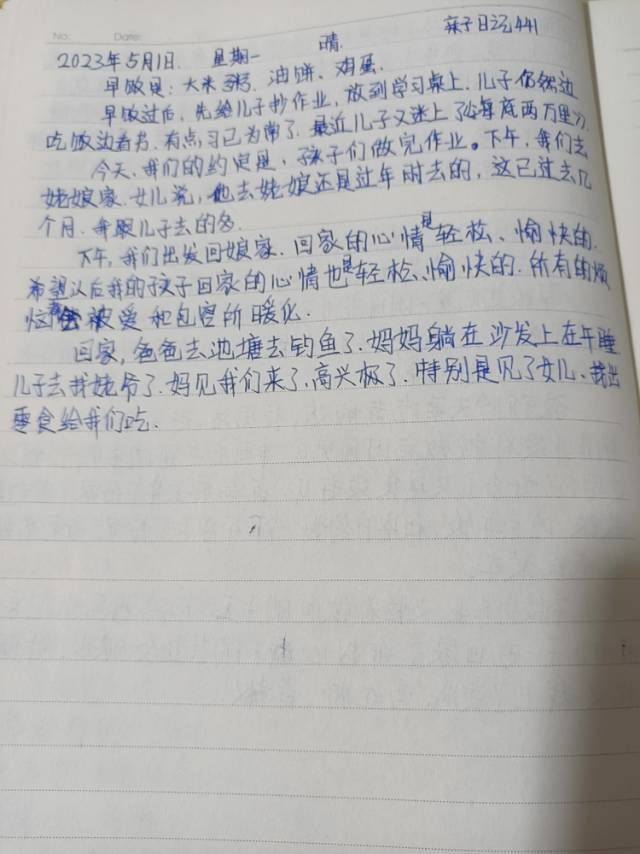 亲子日记441
No: Date:
2023年5月1日 星期一 晴
早饭是:大米粥、油饼、鸡蛋.
早饭过后,先给儿子抄作业,放到学习桌上.儿子仍然边
吃饭边看书.有点习已为常了.最近儿子又迷上了《海底两万里》.
今天,我们的约定是,孩子们做完作业。下午,我们去
姥娘家.女儿说,他去姥娘还是过年时去的,这已过去几
个月.我跟儿子去的多.
下午,我们出发回娘家.回家的心情是轻松、愉快的.
希望以后我的孩子回家的心情也是轻松、愉快的.所有的烦
恼都会被爱和包容所暖化.
回家,爸爸去池塘去钓鱼了.妈妈躺在沙发上在午睡
儿子去找姥爷了.妈见我们来了,高兴极了.特别是见了女儿、拿出
零食给我们吃.